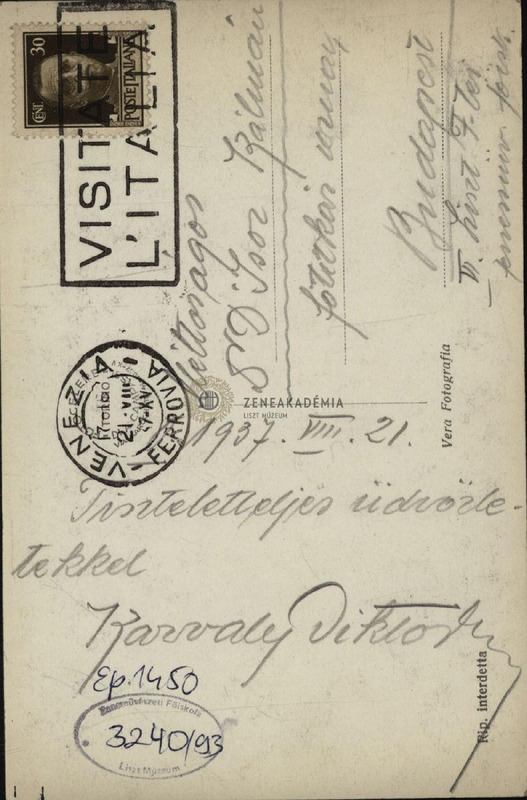 CENT. 30
POSTE ITALIANE
VISITATE
L'ITALIA
VENEZIA
FERROVIA
21.VIII
XV
Méltóságos
Dr Isoz Kálmán
főtitkár urnak
Budapest
VI. Liszt F. tér
ZENEAKADÉMIA
LISZT MÚZEUM
Vera Fotografia
1937. VIII. 21.
Tiszteletteljes üdvözle-
tekkel
Karvaly Viktor
Rip. interdetta
Ep. 1450
Zeneművészeti Főiskola
3240/93
Liszt Múzeum